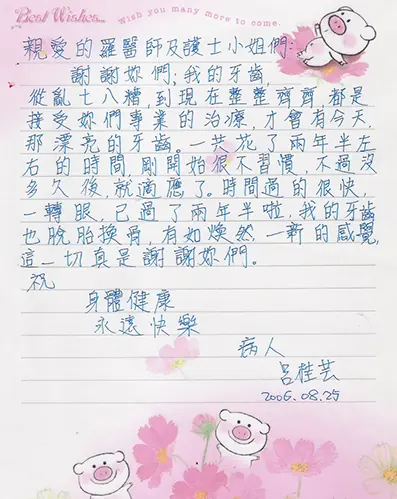 Best Wishes...
Wish you many more to come.
親愛的羅醫師及護士小姐們:
謝謝妳們;我的牙齒,
從亂七八糟,到現在整整齊齊,都是
接受妳們專業的治療,才會有今天,
那漂亮的牙齒。一共花了兩年半左
右的時間,剛開始很不習慣,不過沒
多久後,就適應了。時間過的很快,
一轉眼,已過了兩年半啦,我的牙齒
也脫胎換骨,有如煥然一新的感覺,
這一切真是謝謝妳們。
祝
身體健康
永遠快樂
病人
呂桂芸
2006.08.25